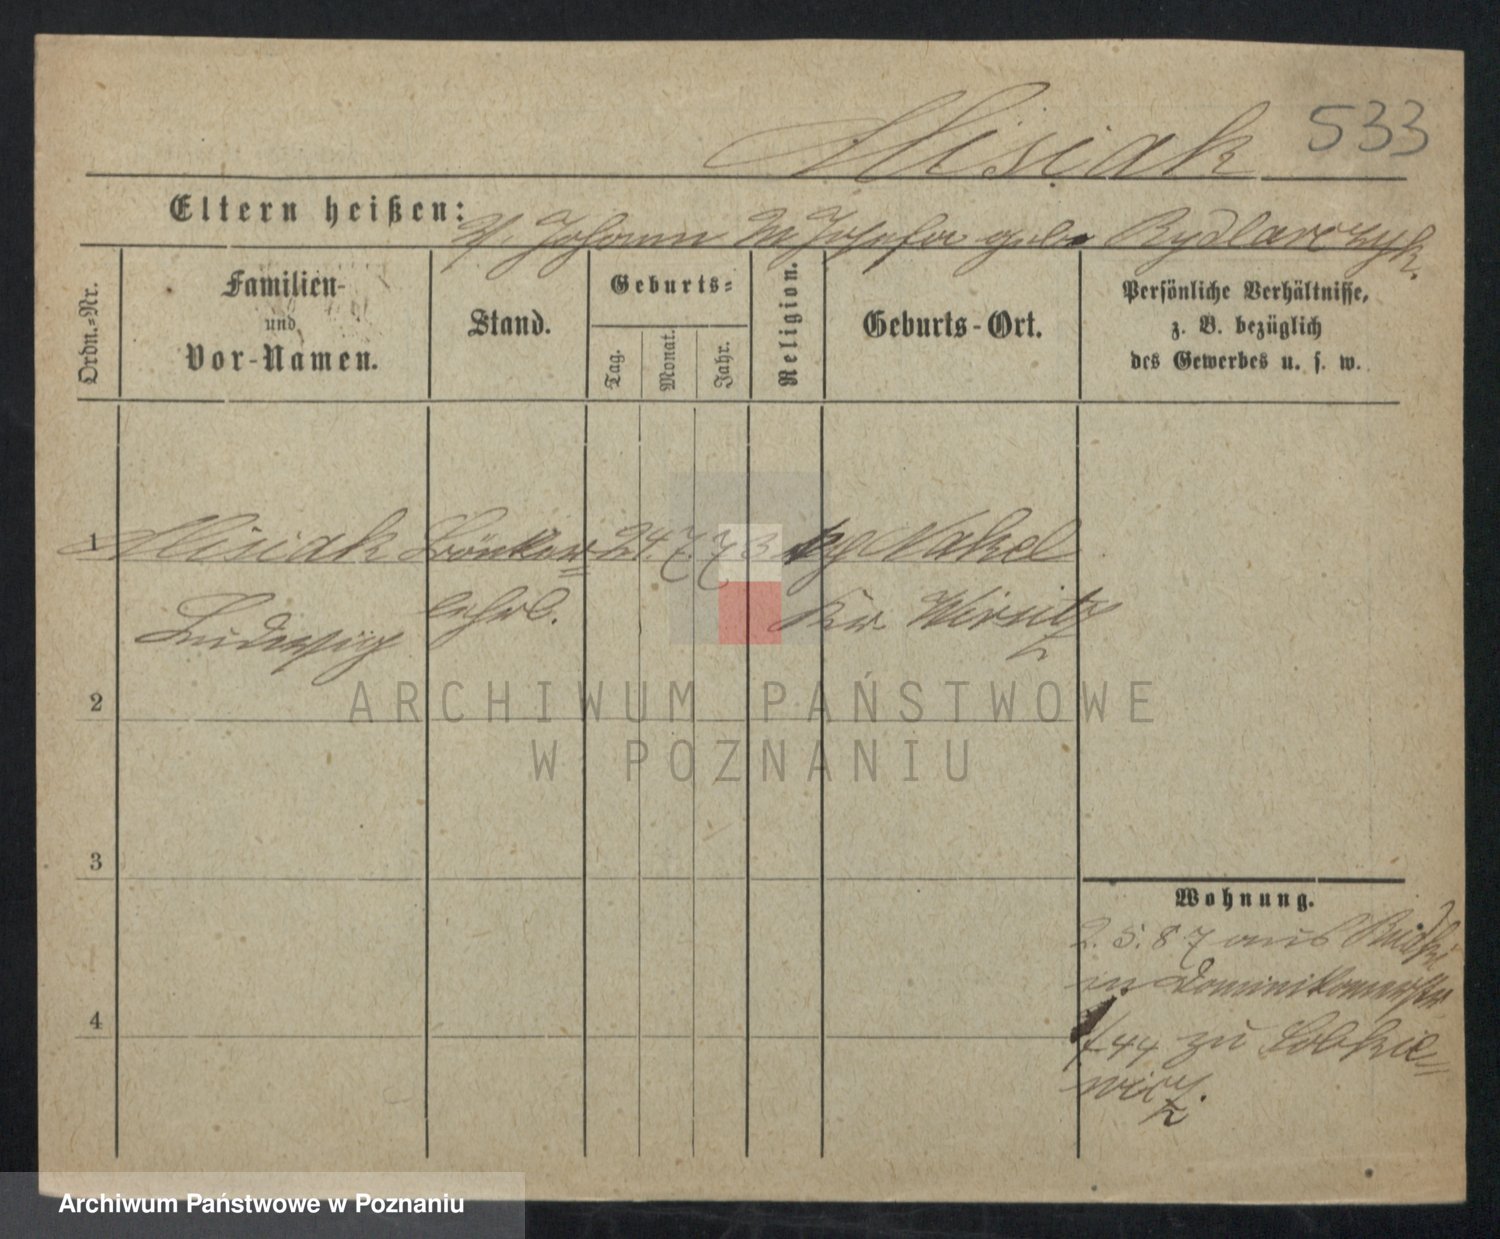 Misiak 533
Eltern heißen: V. Johann M Josefa geb. Rydlarczyk.
Ordn.-Nr.
Familien-
und
Vor-Namen.
Stand.
Geburts-
Tag.
Monat.
Jahr.
Religion.
Geburts-Ort.
Persönliche Verhältnisse,
z. B. bezüglich
des Gewerbes u. s. w.
1 Misiak 24. 7. 73 Nakel
Ludwig lehrl. Kr. Wirsitz
2
3
4
Wohnung.
2. 5. 87 aus
in
44 zu
wicz.
ARCHIWUM PAŃSTWOWE
W POZNANIU
Archiwum Państwowe w Poznaniu